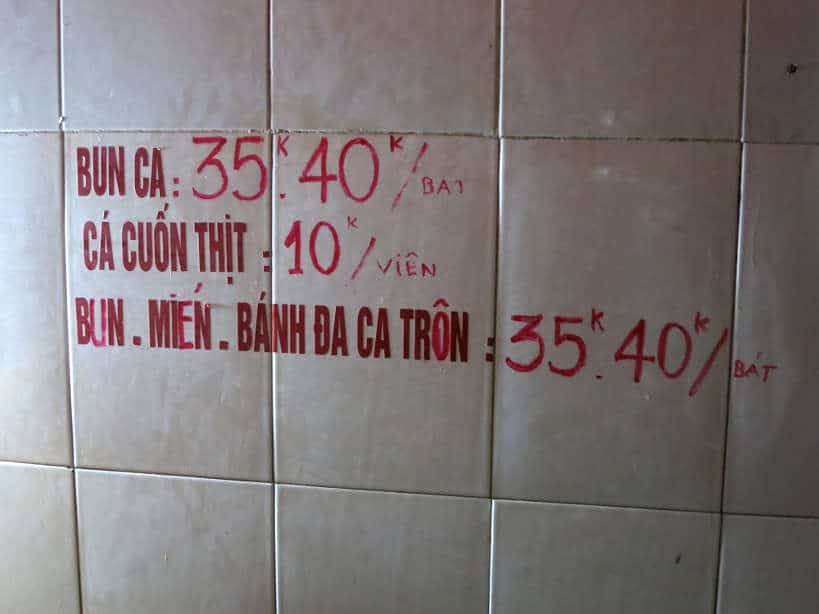 BUN CA : 35K.40K/BAT
CÁ CUỐN THỊT : 10K/VIÊN
BUN . MIẾN . BÁNH ĐA CA TRÔN : 35K.40K/BÁT